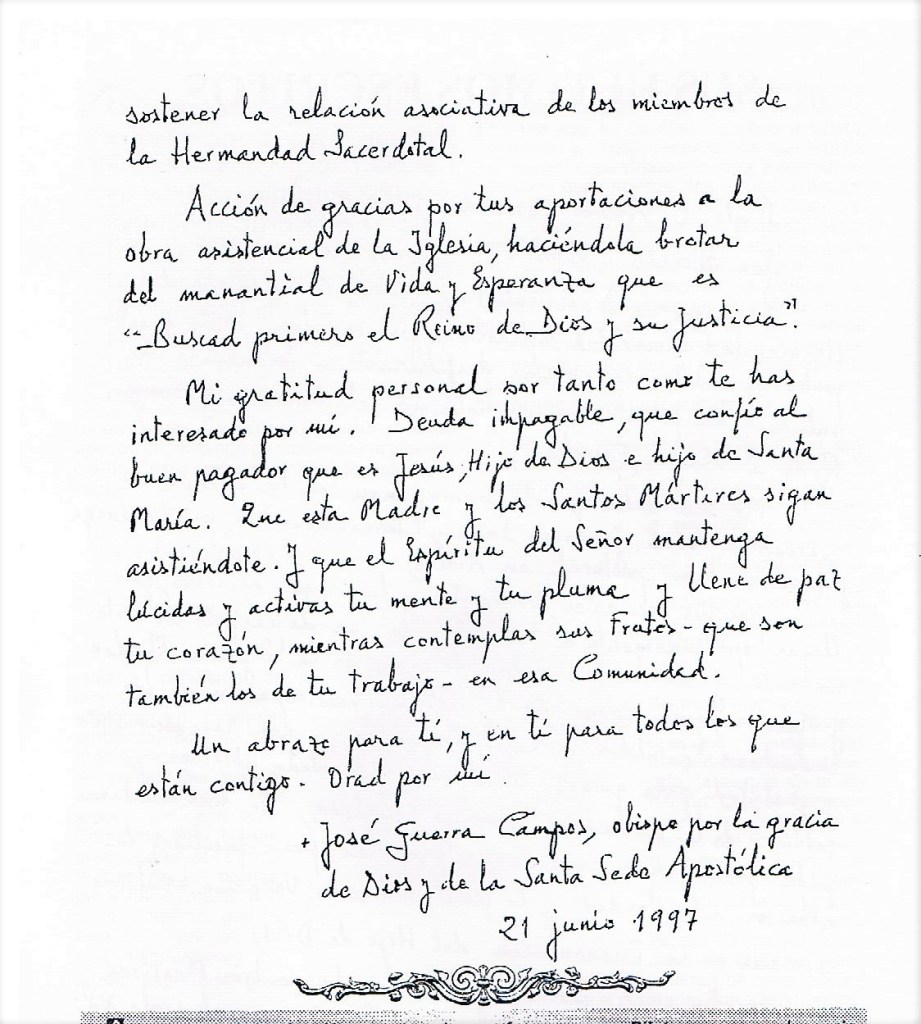 sostener la relación asociativa de los miembros de
la Hermandad Sacerdotal.
Acción de gracias por tus aportaciones a la
obra asistencial de la Iglesia, haciéndola brotar
del manantial de Vida y Esperanza que es
"Buscad primero el Reino de Dios y su Justicia".
Mi gratitud personal por tanto como te has
interesado por mí. Deuda impagable, que confío al
buen pagador que es Jesús, Hijo de Dios e hijo de Santa
María. Que esta Madre y los Santos Mártires sigan
asistiéndote. Y que el Espíritu del Señor mantenga
lúcidas y activas tu mente y tu pluma y llene de paz
tu corazón, mientras contemplas sus Frutos - que son
también los de tu trabajo - en esa Comunidad.
Un abrazo para tí, y en tí para todos los que
están contigo. Orad por mí
+ José Guerra Campos, obispo por la gracia
de Dios y de la Santa Sede Apostólica
21 junio 1997